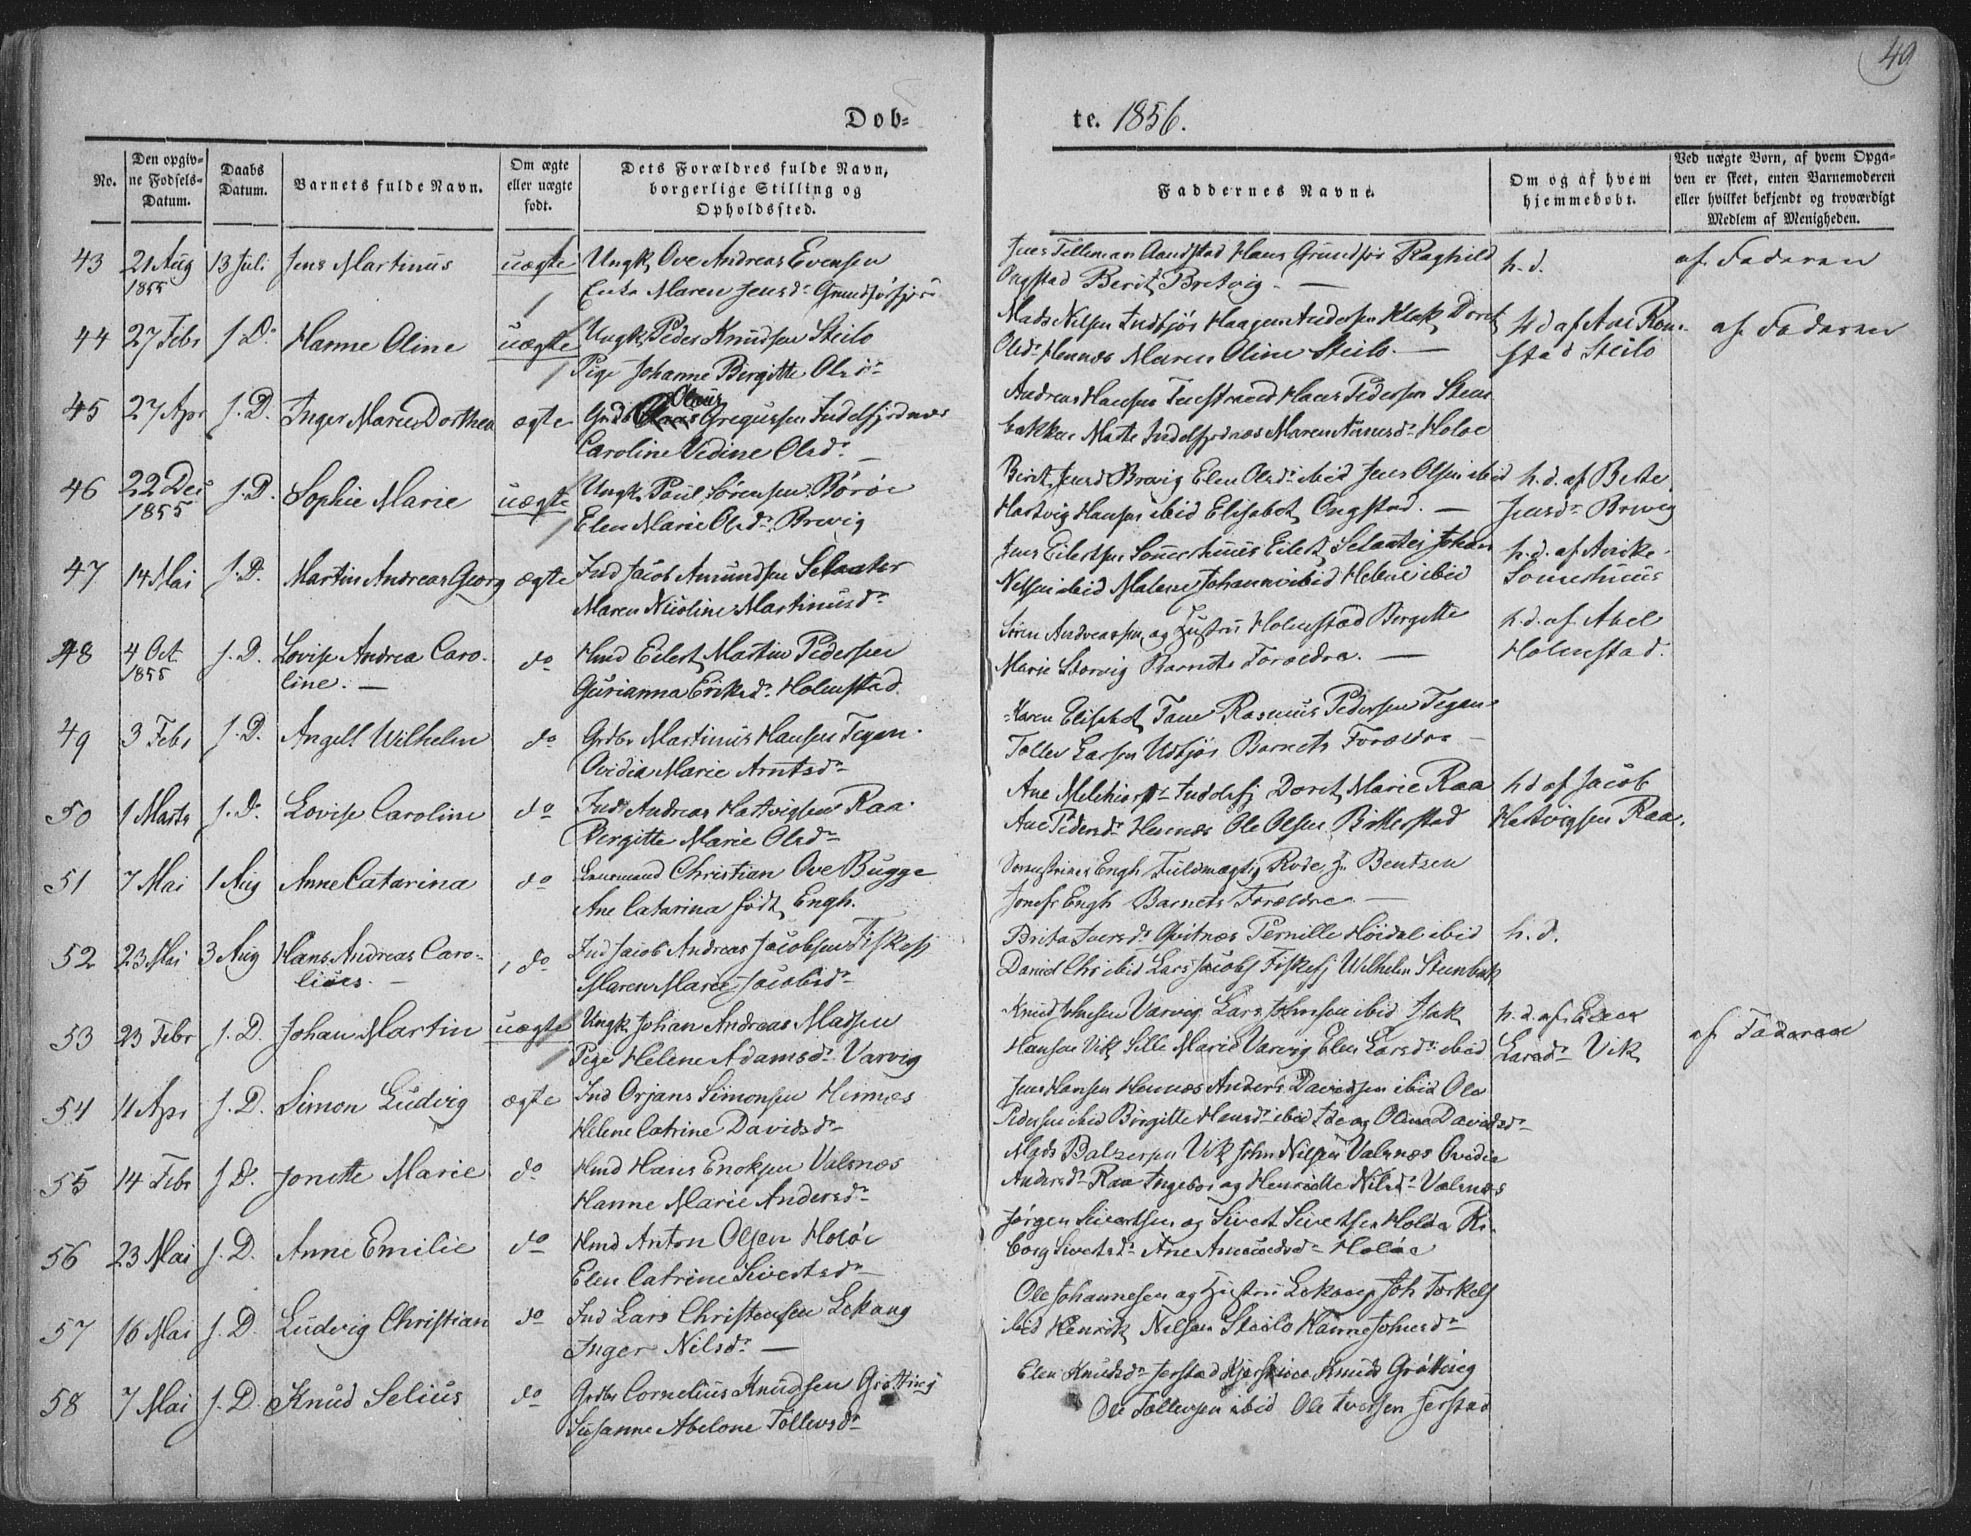 49
Døb-
te. 1856.
No.
Den opgiv-
ne Fødsels-
Datum.
Daabs
Datum.
Barnets fulde Navn.
Om ægte
eller uægte
født.
Dets Forældres fulde Navn,
borgerlige Stilling og
Opholdssted.
Faddernes Navne.
Om og af hvem
hjemmedøbt.
Ved uægte Børn, af hvem Opga-
ven er skeet, enten Barnemoderen
eller hvilket bekjendt og troværdigt
Medlem af Menigheden.
43 21 Aug 13 Juli Jens Martinus uægte Ungk. Ove Andreas Evensen
1855
Enke Maren Jensdr
Hans Grundfør Raghild h.d. af Faderen
Ongstad Berit Bretvig. —
44 27 Febr s.D. Hanne Oline uægte Ungk. Peder Knudsen Steilo
Pige Johanne Birgitte Olsdr
Mads Nilsen Indfjør Haagen Andersen Klak Doret h.d. af Ane Rom- af Faderen
Olsdr Hennæs Maren Oline Steilo. — stad Steilo
45 27 Apr s.D. Inger Marie Dorthea ægte Grdb Olaus Gregussen Indelfjordnæs
Caroline Vedine Olsdr —
Andreas Hansen Hans Pedersen Steen
bakken Marte Indelfjordnæs Maren Holøe
46 22 Dec s.D. Sophie Marie uægte Ungk. Paul Sørensen Børøe
1855
Elen Marie Olsdr Brevig
Berit Jensd Brevig Elen Olsdr ibid Jens Olsen ibid h.d. af Berte
Hartvig Hansen ibid Elisabet Ongstad. — Jensdr Brevig
47 14 Mai s.D. Martin Andreas Georg ægte Ind Jacob Amundsen Selaater
Maren Nicoline Martinusdr
Jens Eilertsen Eilert Selaater Johan h.d. af
Nilsen ibid Malene ibid Helene ibid
48 4 Oct s.D. Lovise Andrea Caro- do Hmd Eilert Martin Pedersen
1855 line. —
Gurianna Eriksdr Holmstad.
Søren Andreassen og Hustru Holmstad Bergitte h.d. af Abel
Marie Storvig Barnets Forældre. — Holmstad.
49 3 Febr s.D. Angell Wilhelm do Grdbr Martinus Hansen Tegen.
Ovidia Marie Arntsdr
Karen Elisabet Rasmus Pedersen Tegen
Tollev Larsen Udfjør Barnets Forældre —
50 1 Marts s.D. Lovise Caroline do Ind Andreas Hartvigsen Raa.
Bergitte Marie Olsdr
Ane Melchiorsdr Doret Marie Raa h.d. af Jacob
Ane Pedersdr Hennæs Ole Olsen Bitterstad Hartvigsen Raa.
51 7 Mai 1 Aug Anne Catarina do Christian Ove Bugge
Ane Catarina født Engh.
Engh Fuldmægtig Rode Bentzen
Jomfr Engh Barnets Forældre —
52 23 Mai 3 Aug Hans Andreas Caro- do Ind Jacob Andreas Jacobsen Fiskefj
lius. — Maren Marie Jacobsdr
Brita Iversdr Qvitnæs Pernille Høidal ibid h.d.
Daniel Chr ibid Lars Jacobs Fiskefj Wilhelm Steenbak
53 23 Febr s.D. Johan Martin uægte Ungk Johan Andreas Madsen
Pige Helene Adamsdr Varvig
Knud Johnsen Varvig Lars Johnsen ibid Isak h.d. af Elen af Faderen
Hansen Vik Sille Marie Varvig Elen Larsdr ibid Larsdr Vik
54 11 Apr s.D. Simon Ludvig ægte Ind Orjans Simonsen Hennæs
Helene Catrine Davidsdr
Jens Hansen Hennæs Anders Davidsen ibid Ole
Pedersen ibid Birgitte Hansdr ibid Ide og Oline Davidsdr
55 14 Febr s.D. Jonette Marie do Hmd Hans Enoksen Valsnæs
Hanne Marie Andersdr
Mads Balzersen Vik John Nilsen Valsnæs Ovidia
Andersdr Raa Ingebor og Henriette Nilsdr Valsnæs
56 23 Mai s.D. Anne Emilie do Hmd Anton Olsen Holøe
Elen Catrine Sivertsdr
Jørgen Sivertsen og Sivert Sivertsen Holøe Ri-
borg Sivertsdr Ane Amundsdr Holøe
57 16 Mai s.D. Ludvig Christian do Ind Lars Christensen Lekang
Inger Nilsdr —
Ole Johannesen og Hustru Lekang Joh Torkels
ibid Henrik Nilsen Steilo Hanne Johnsdr
58 7 Mai s.D. Knud Selius do Grdbr Cornelius Knudsen Grøtting
Susanne Abelone Tollevsdr
Elen Knudsdr Jerstad Knuds Grøtting
Ole Tollevsen ibid Ole Iversen Jerstad